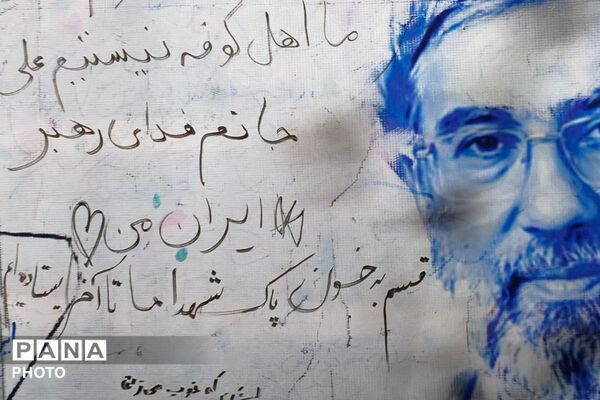 ما اهل کوفه نیستیم علی
جانم فدای رهبر
ایران من
قسم به خون پاک شهدا ما تا آخر ایستاده‌ایم
که خوب می‌زنی
PANA
PHOTO